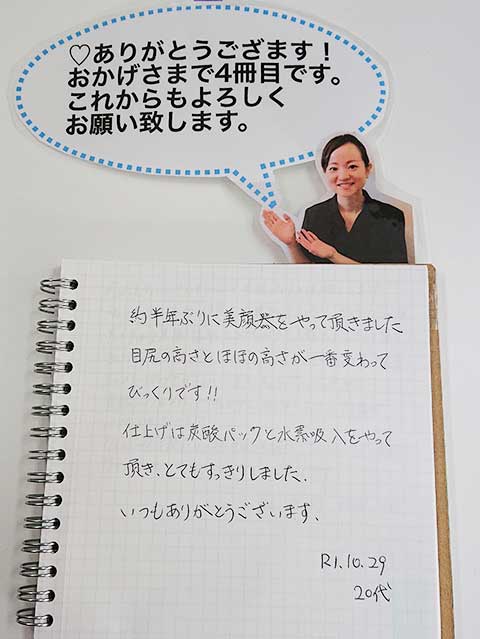 ♡ありがとうござます！
おかげさまで4冊目です。
これからもよろしく
お願い致します。
約半年ぶりに美顔器をやって頂きました
目尻の高さとほほの高さが一番変わって
びっくりです!!
仕上げは炭酸パックと水素吸入をやって
頂き、とてもすっきりしました。
いつもありがとうございます、
R1.10.29
20代